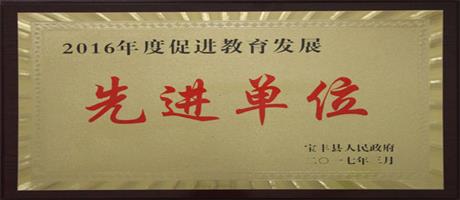 2016年度促进教育发展
先进单位
宝丰县人民政府
二〇一七年三月